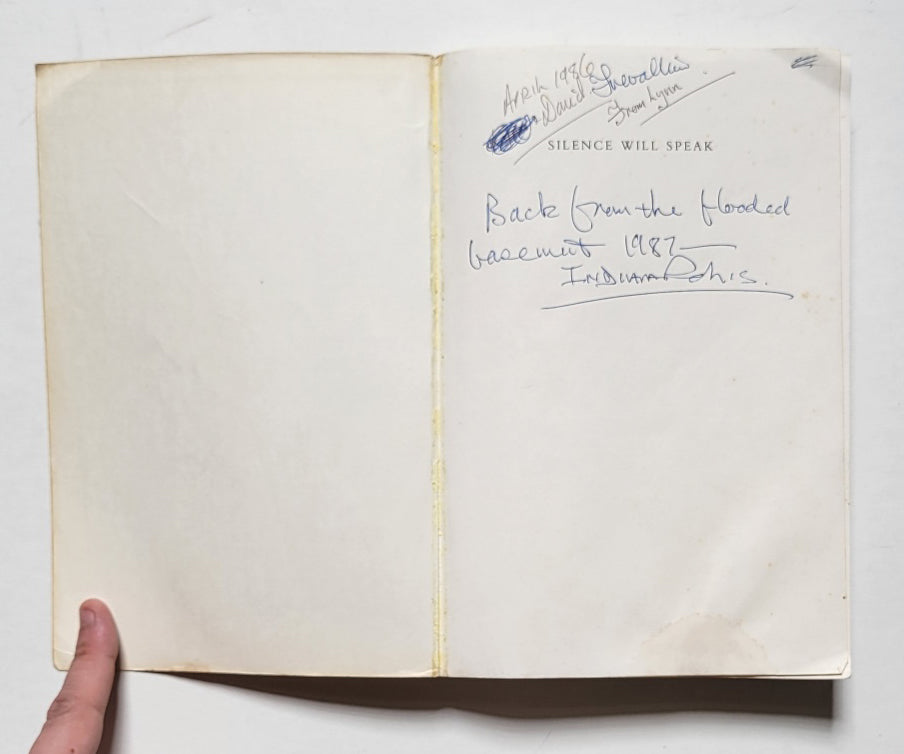 April 1986
David
From Lynn
SILENCE WILL SPEAK
Back from the flooded
basement 1987—
INDIANAPOLIS.